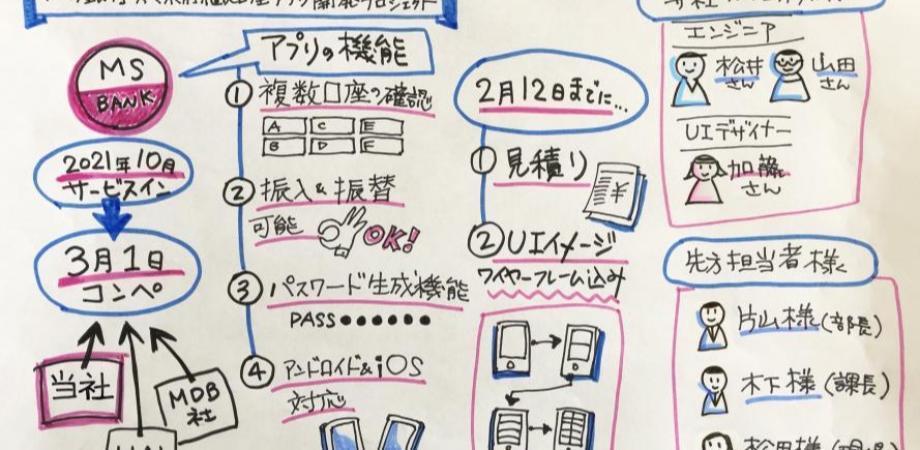 MS
BANK
2021年10月
サービスイン
3月1日
コンペ
当社
MDB
社
アプリの機能
① 複数口座の確認
A C E
B D F
② 振入&振替
可能 OK!
③ パスワード生成機能
PASS ●●●●●●
④ アンドロイド&iOS
対応
2月12日までに...
① 見積り
¥
② UIイメージ
ワイヤーフレーム込み
エンジニア
松井
さん
山田
さん
UIデザイナー
加藤
さん
先方担当者様
片山様(部長)
木下様(課長)
松田様